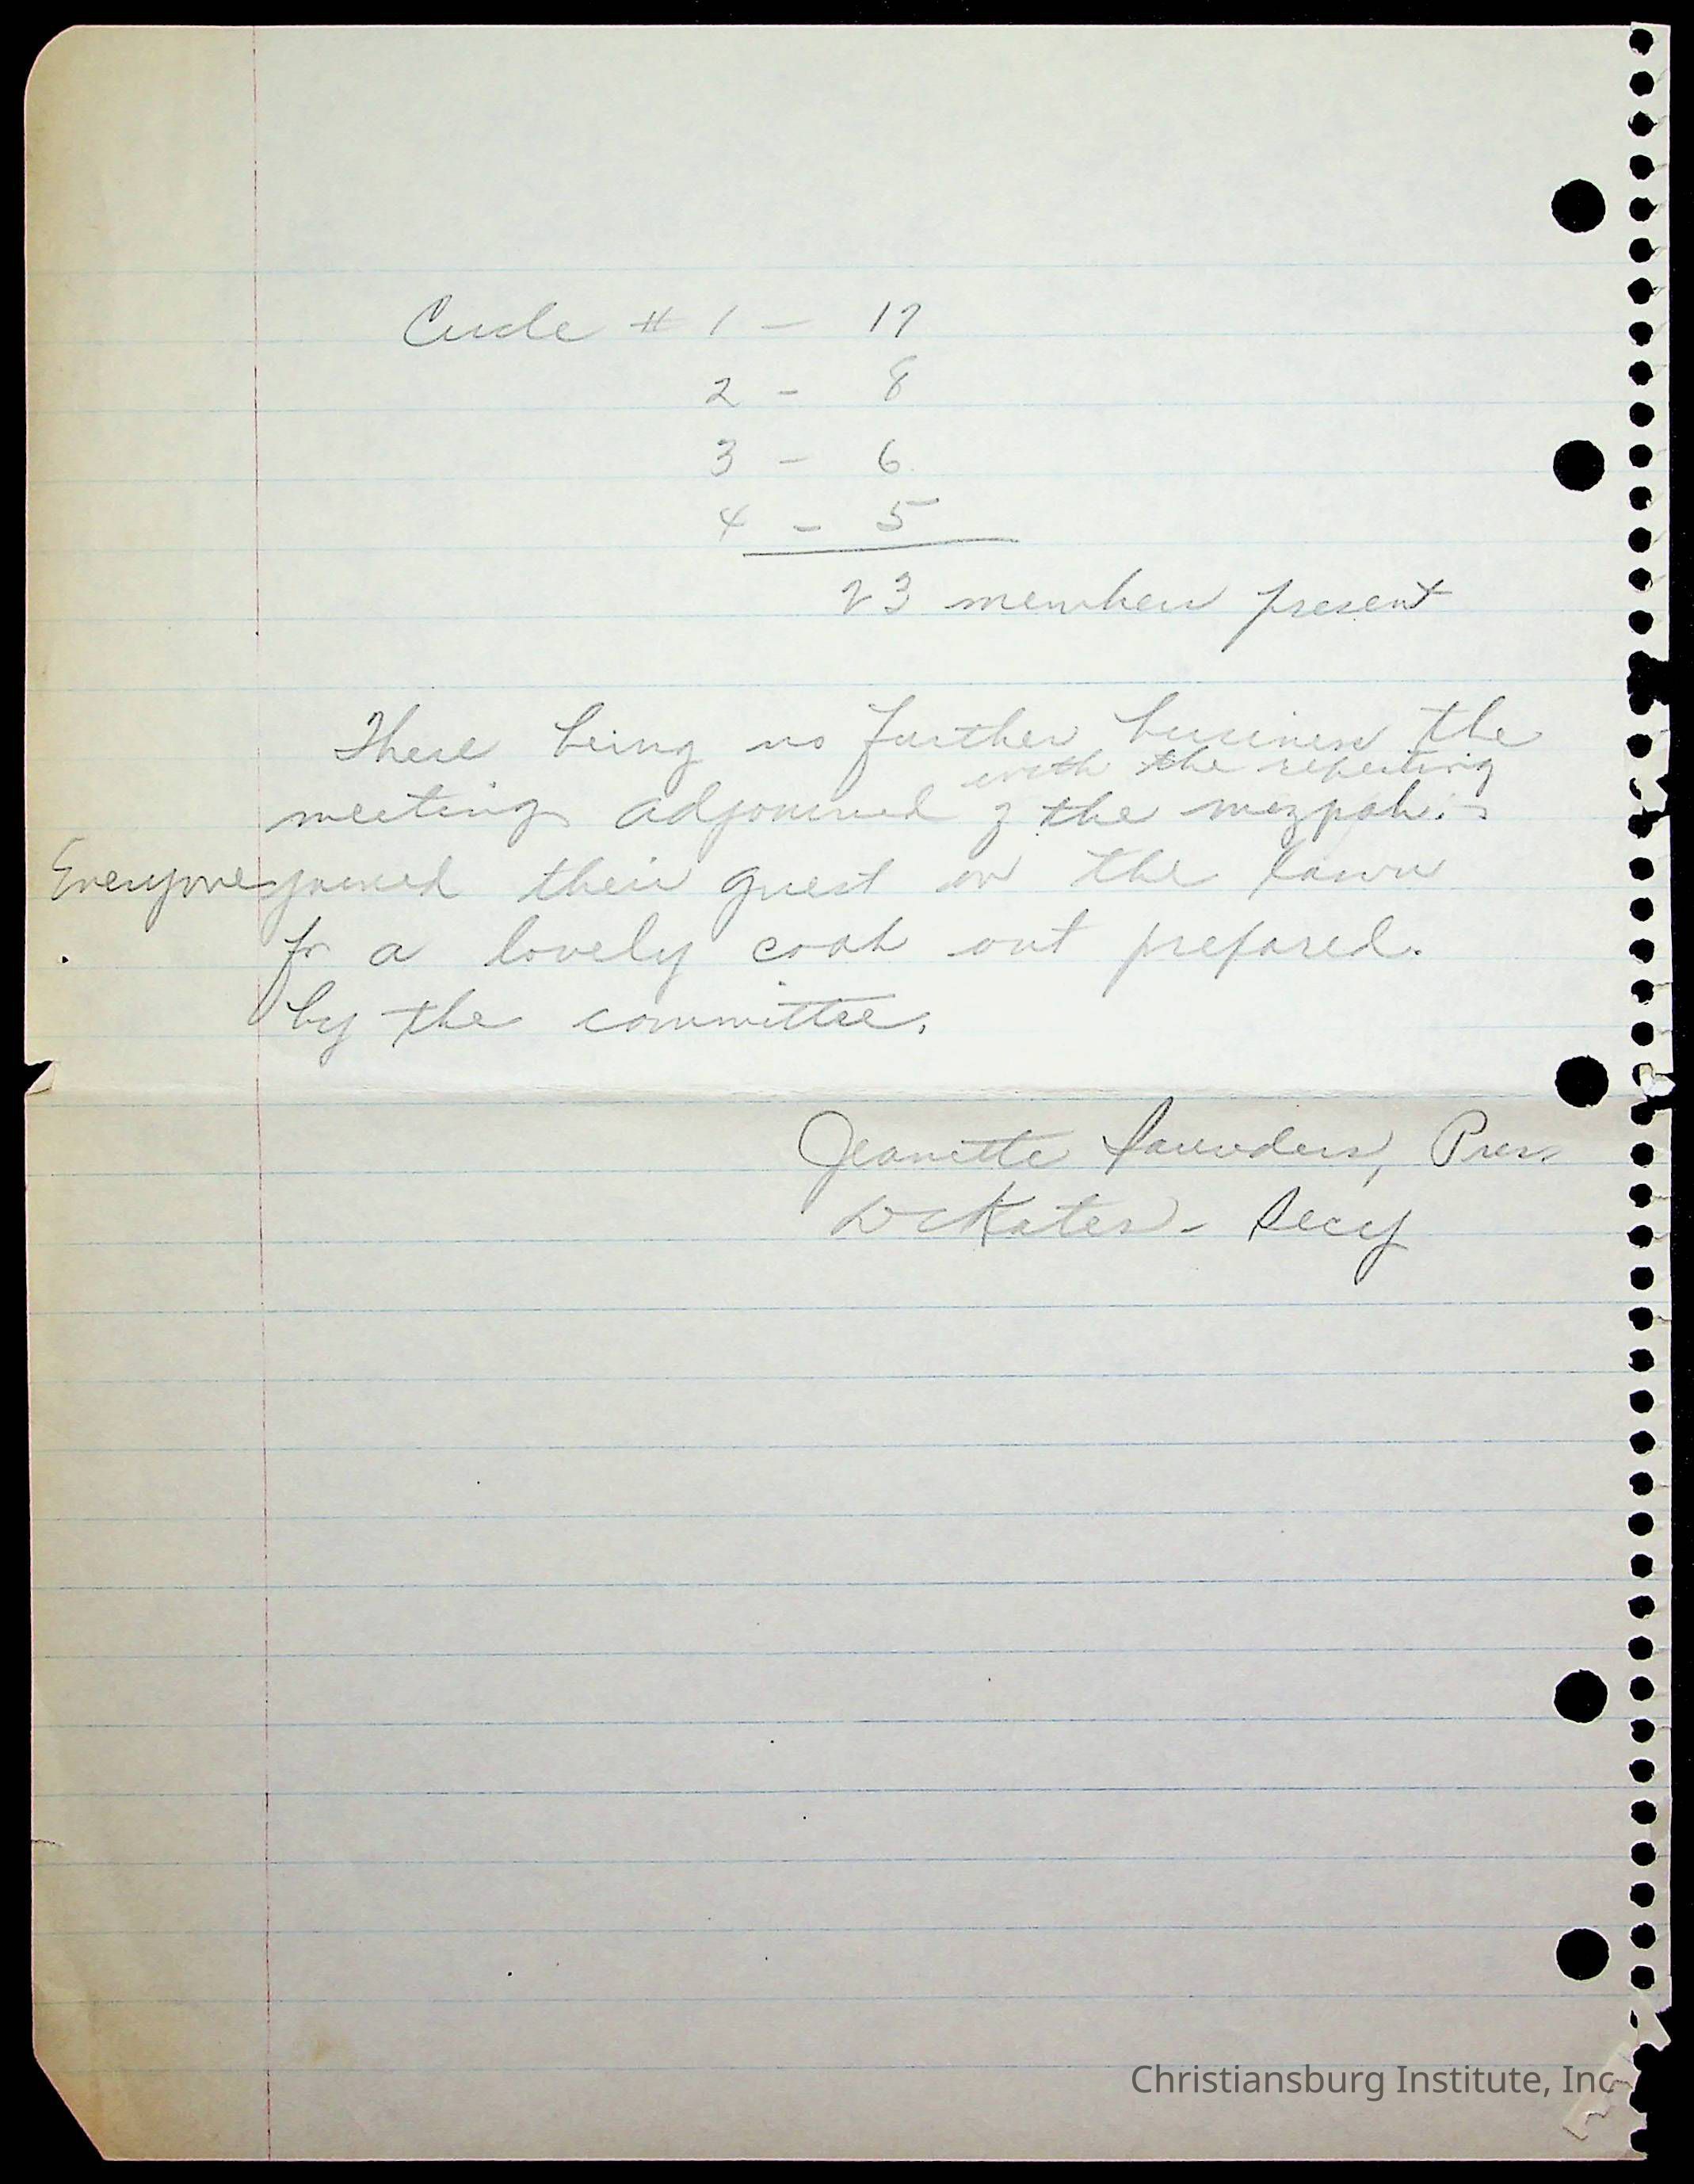 Circle # 1 - 17
2 - 8
3 - 6
4 - 5
23 members present
There being no further business the
with the repeating
meeting adjourned of the mezpah.
Everyone joined their guest on the lawn
for a lovely cook out prepared.
by the committee.
Jeanette Saunders, Pres
Kates - Secy
Christiansburg Institute, Inc